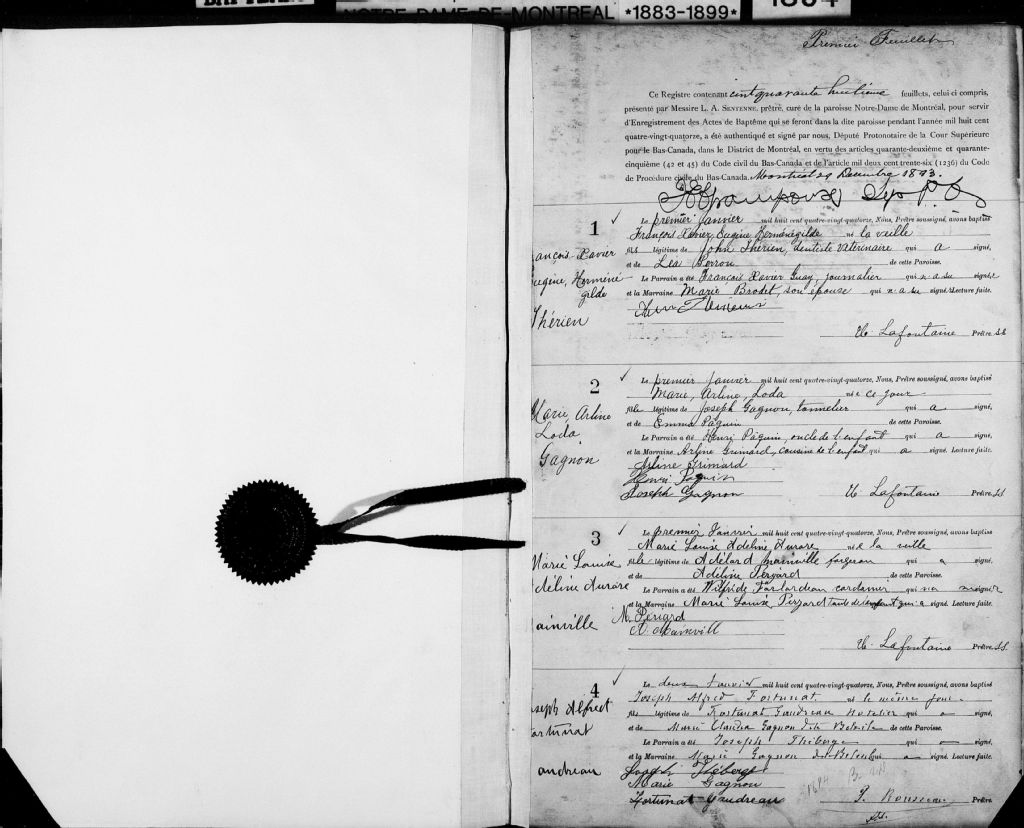 NOTRE-DAME-DE-MONTREAL *1883-1899*
Premier Feuillet
Ce Registre contenant cinq quarante huitième feuillets, celui-ci compris,
présenté par Messire L. A. SENTENNE, prêtre, curé de la paroisse Notre-Dame de Montréal, pour servir
d'Enregistrement des Actes de Baptême qui se feront dans la dite paroisse pendant l'année mil huit cent
quatre-vingt-quatorze, a été authentiqué et signé par nous, Député Protonotaire de la Cour Supérieure
pour le Bas-Canada, dans le District de Montréal, en vertu des articles quarante-deuxième et quarante-
cinquième (42 et 45) du Code civil du Bas-Canada et de l'article mil deux cent trente-six (1236) du Code
de Procédure civile du Bas-Canada. Montréal 29 Décembre 1893.
Dep P.
1
ançois Xavier
ugène, Herméné
gilde
Thérien
Le premier Janvier mil huit cent quatre-vingt-quatorze, Nous, Prêtre soussigné, avons baptisé
François Xavier Eugène Herménégilde né la veille
fils légitime de John Thérien, dentiste Vétérinaire qui a signé,
et de Léa Perron de cette Paroisse.
Le Parrain a été François Xavier Guay, journalier qui n'a su signer
et la Marraine Marie Brodet, son épouse qui n'a su signer. Lecture faite.
Lafontaine Prêtre S.S.
2
Marie, Arline
Loda
Gagnon
Le premier Janvier mil huit cent quatre-vingt-quatorze, Nous, Prêtre soussigné, avons baptisé
Marie, Arline, Loda née ce jour
fille légitime de Joseph Gagnon, tonnelier qui a signé,
et de Emma Paquin de cette Paroisse.
Le Parrain a été Henri Paquin, oncle de l'enfant qui a signé,
et la Marraine Arline Grimard, cousine de l'enfant qui a signé. Lecture faite.
Arline Grimard
Henri Paquin
Joseph Gagnon
Lafontaine Prêtre, S.S.
3
Marie Louise
déline Aurore
ainville
Le premier Janvier mil huit cent quatre-vingt-quatorze, Nous, Prêtre soussigné, avons baptisé
Marie Louise Adéline Aurore née la veille
fille légitime de Adélard Mainville forgeron qui a signé,
et de Adéline Périard de cette Paroisse.
Le Parrain a été Wilfride cordonnier qui n'a signer
et la Marraine Marie Louise Périard tante de l'enfant qui a signé. Lecture faite.
M. Périard
A. Mainvill
Lafontaine Prêtre S.S.
4
seph Alfred
ortunat
audreau
Le deux Janvier mil huit cent quatre-vingt-quatorze, Nous, Prêtre soussigné, avons baptisé
Joseph Alfred Fortunat né le même jour.
fils légitime de Fortunat Gaudreau hotelier qui a signé,
et de Marie Claudia Gagnon dite Belisle de cette Paroisse.
Le Parrain a été Joseph Théberge qui a signé,
et la Marraine Marie Gagnon qui a signé. Lecture faite.
Joseph Théberge
Marie Gagnon
Fortunat Gaudreau
Rousseau Prêtre